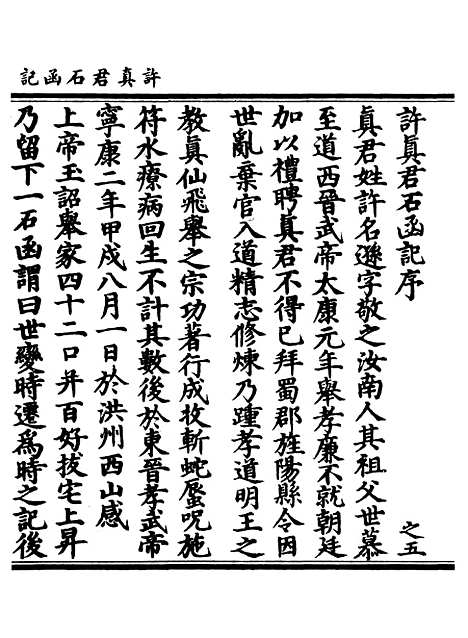 許真君石函記
許真君石函記序
之五
真君姓許名遜字敬之汝南人其祖父世慕
至道西晉武帝太康元年舉孝廉不就朝廷
加以禮聘真君不得已拜蜀郡旌陽縣令因
世亂棄官入道精志修煉乃踵孝道明王之
教真仙飛舉之宗功著行成牧斬蛇蜃呪施
符水療病回生不計其數後於東晉孝武帝
寧康二年甲戌八月一日於洪州西山感
上帝玉詔舉家四十二口并百好拔宅上昇
乃留下一石函謂曰世變時遷爲時之記後